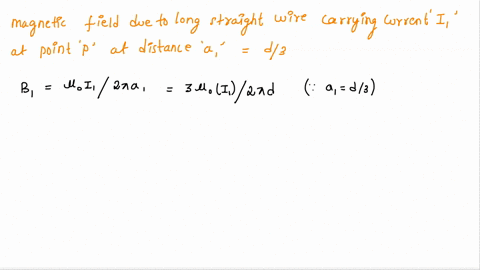 magnetic field due to long straight wire carrying current 'I₁'
at point 'p' at distance 'a₁' = d/3
B₁ = μ₀I₁/2πa₁ = 3μ₀(I₁)/2πd (∵ a₁=d/3)